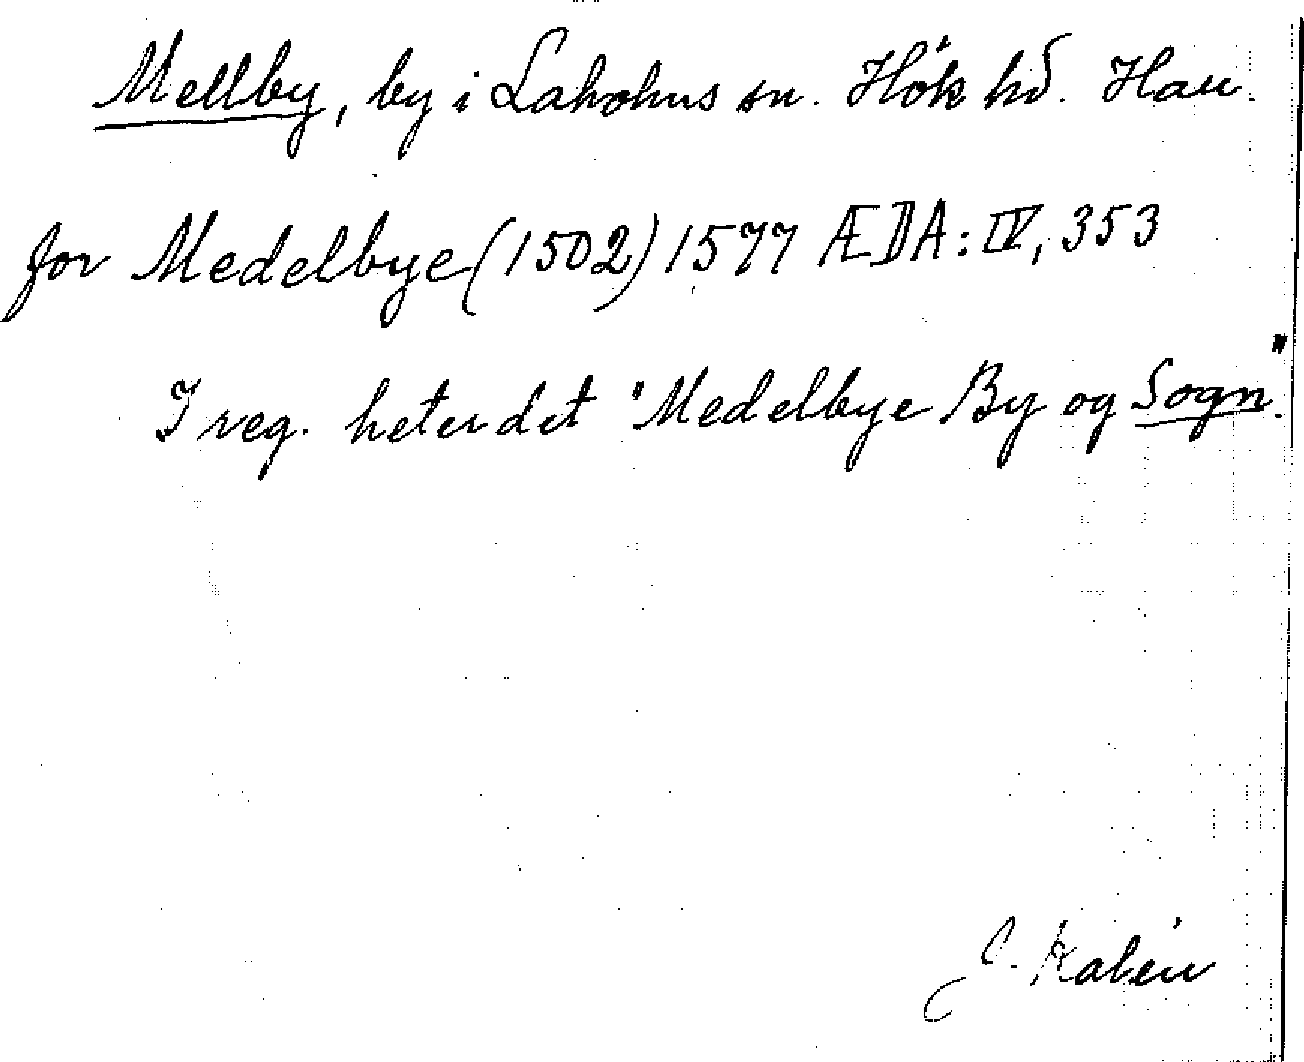 Mellby, by i Laholms sn. Hök hd. Hall.
for Medelbye (1502) 1577 ÆDA: IV, 353
I reg. heter det "Medelbye By og Sogn".
J. Kalén